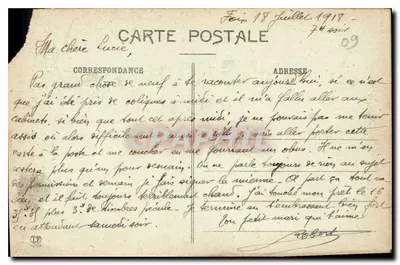 Foix 18 Juillet 1918 -
7h soir
CARTE POSTALE
09
Ma chère Lucie,
CORRESPONDANCE
ADRESSE
Pas grand chose de neuf à te raconter aujourd'hui, si ce n'est
que j'ai été pris de coliques à midi et il m'a fallu aller aux
cabinets, si bien que tout cet après midi, je ne pouvais pas me tenir
assis ou alors difficilement
aller porter cette
carte à la poste et me coucher en
un obus. Il ne m'en
restera plus rien pour demain. On ne parle toujours de rien au sujet
des permissions et demain je fais signer la mienne. A part ça tout va
bien, et il fait toujours terriblement chaud. J'ai touché mon prêt le 16
plus
de timbres
Je termine en t'embrassant bien fort
en attendant samedi soir
Ton petit mari qui t'aime
Robert